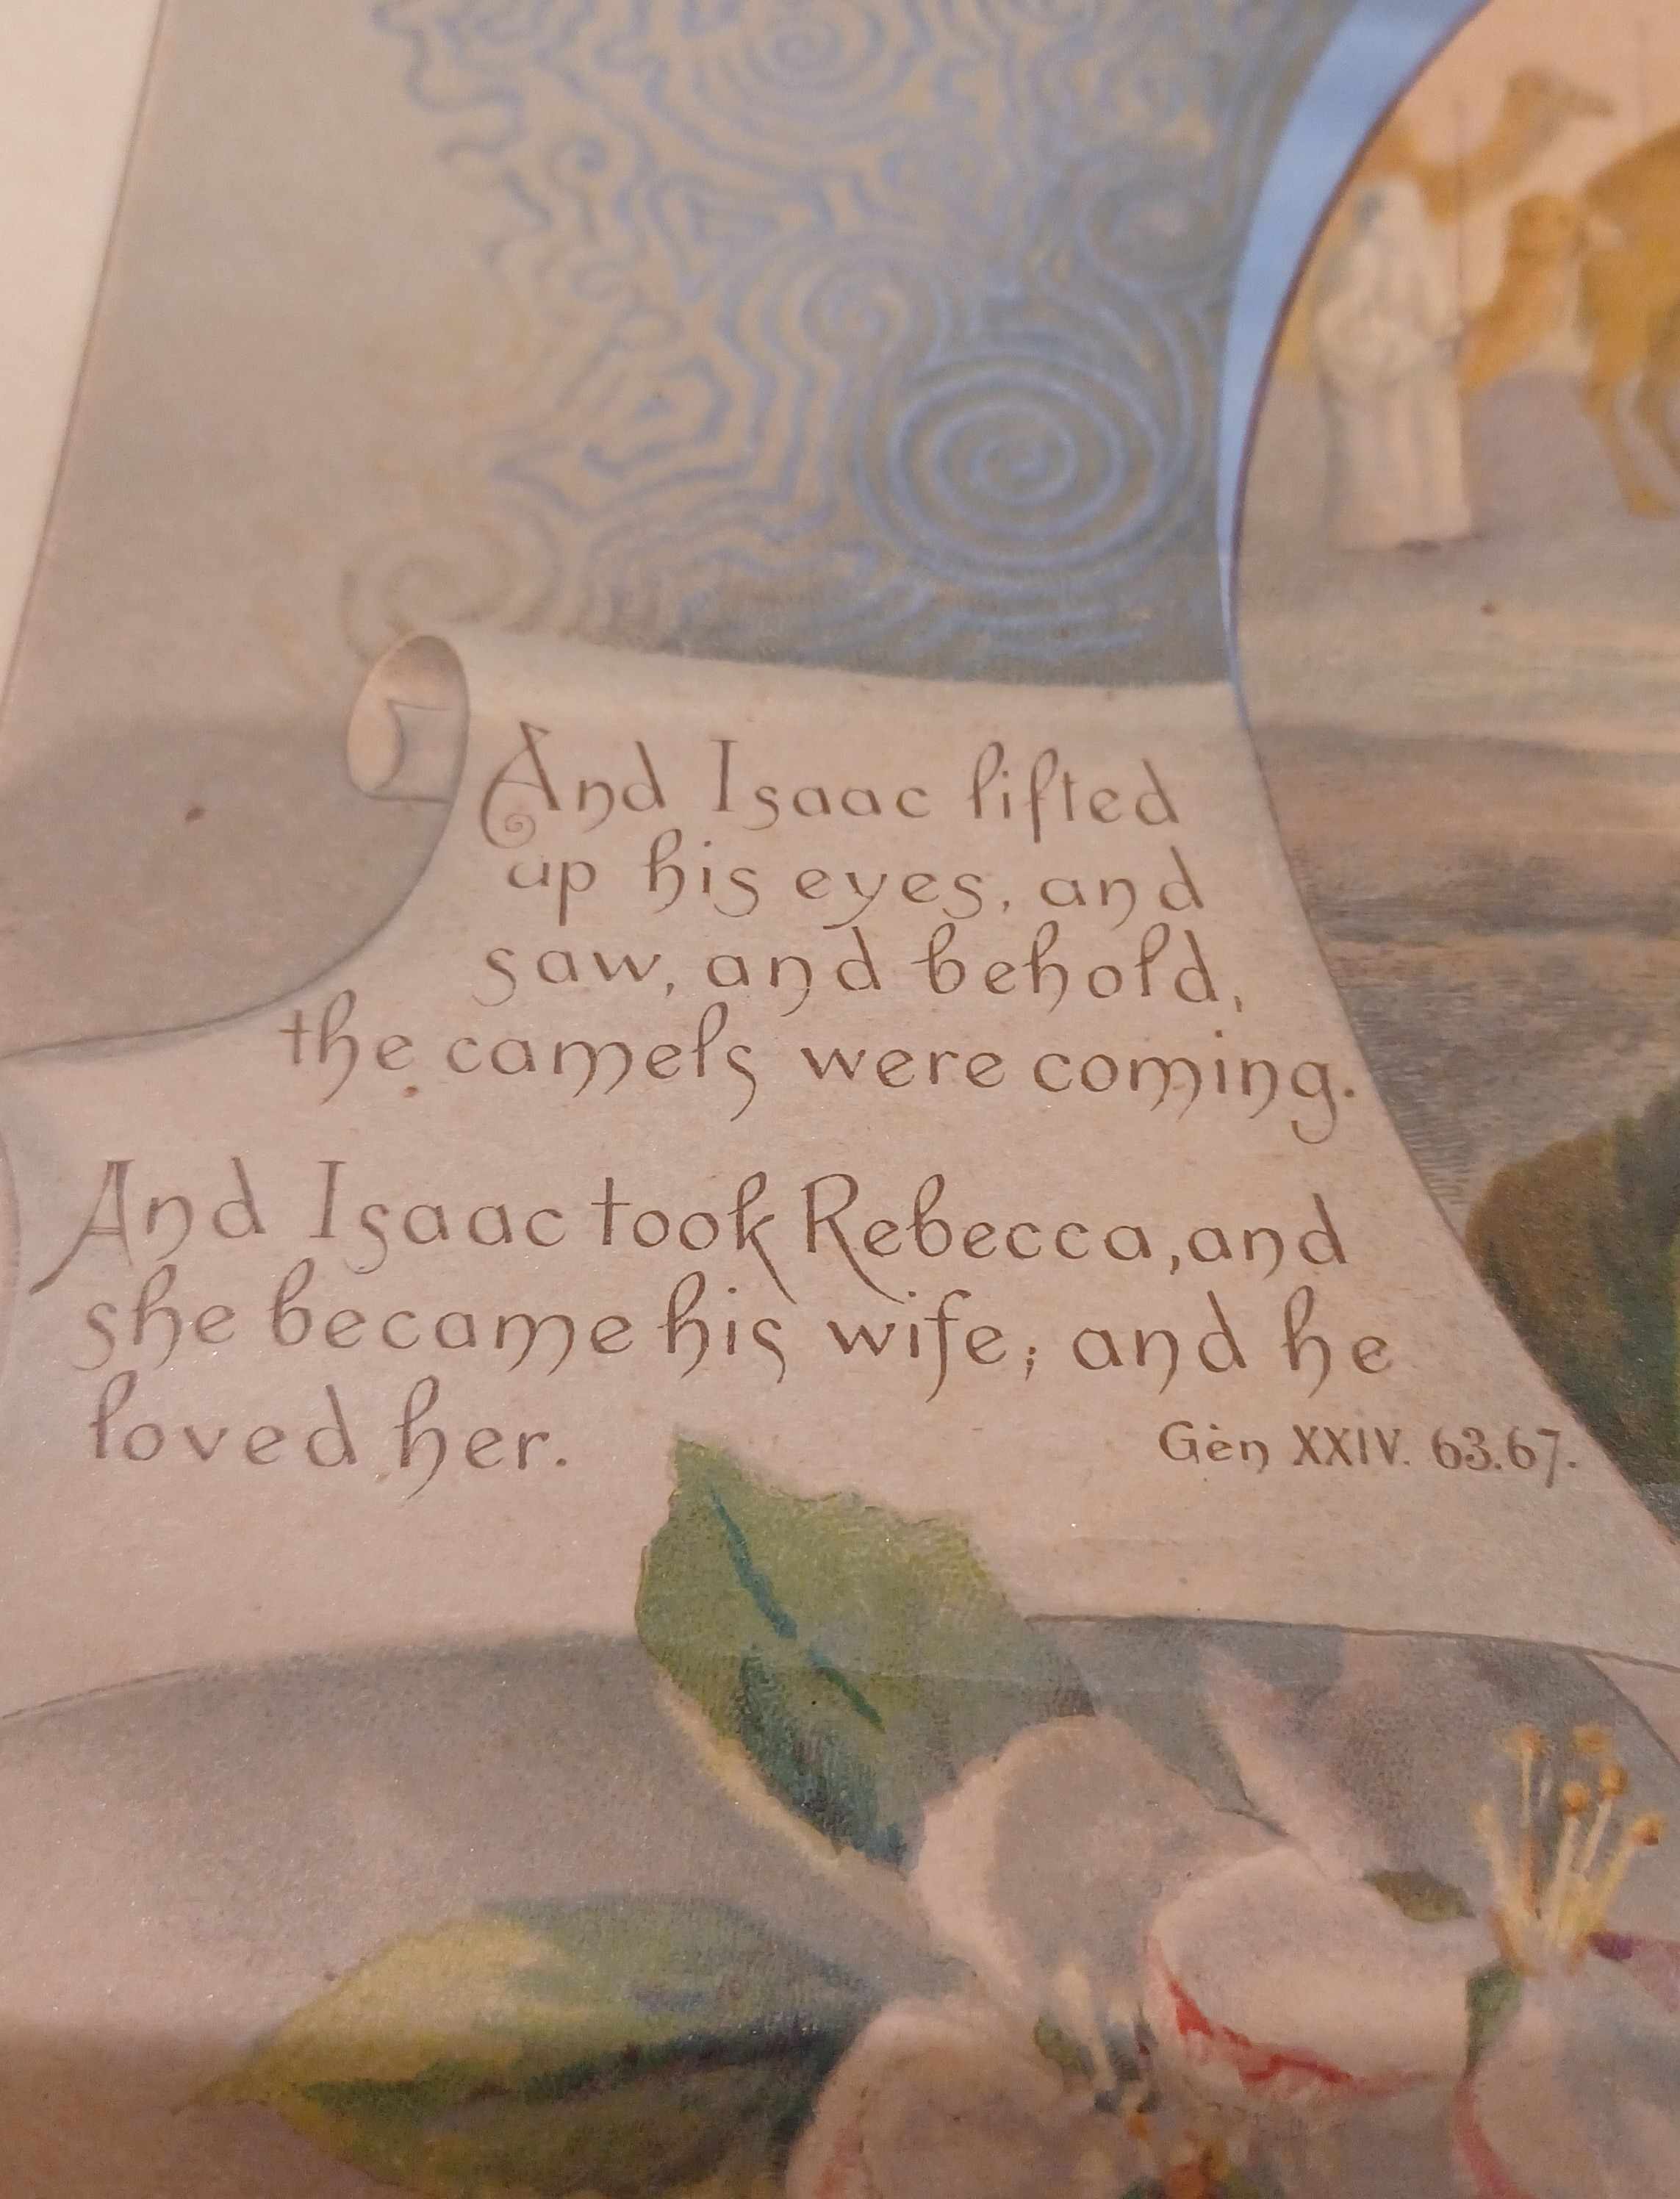 And Isaac lifted
up his eyes, and
saw, and behold,
the camels were coming.
And Isaac took Rebecca, and
she became his wife; and he
loved her.
Gèn XXIV. 63.67.